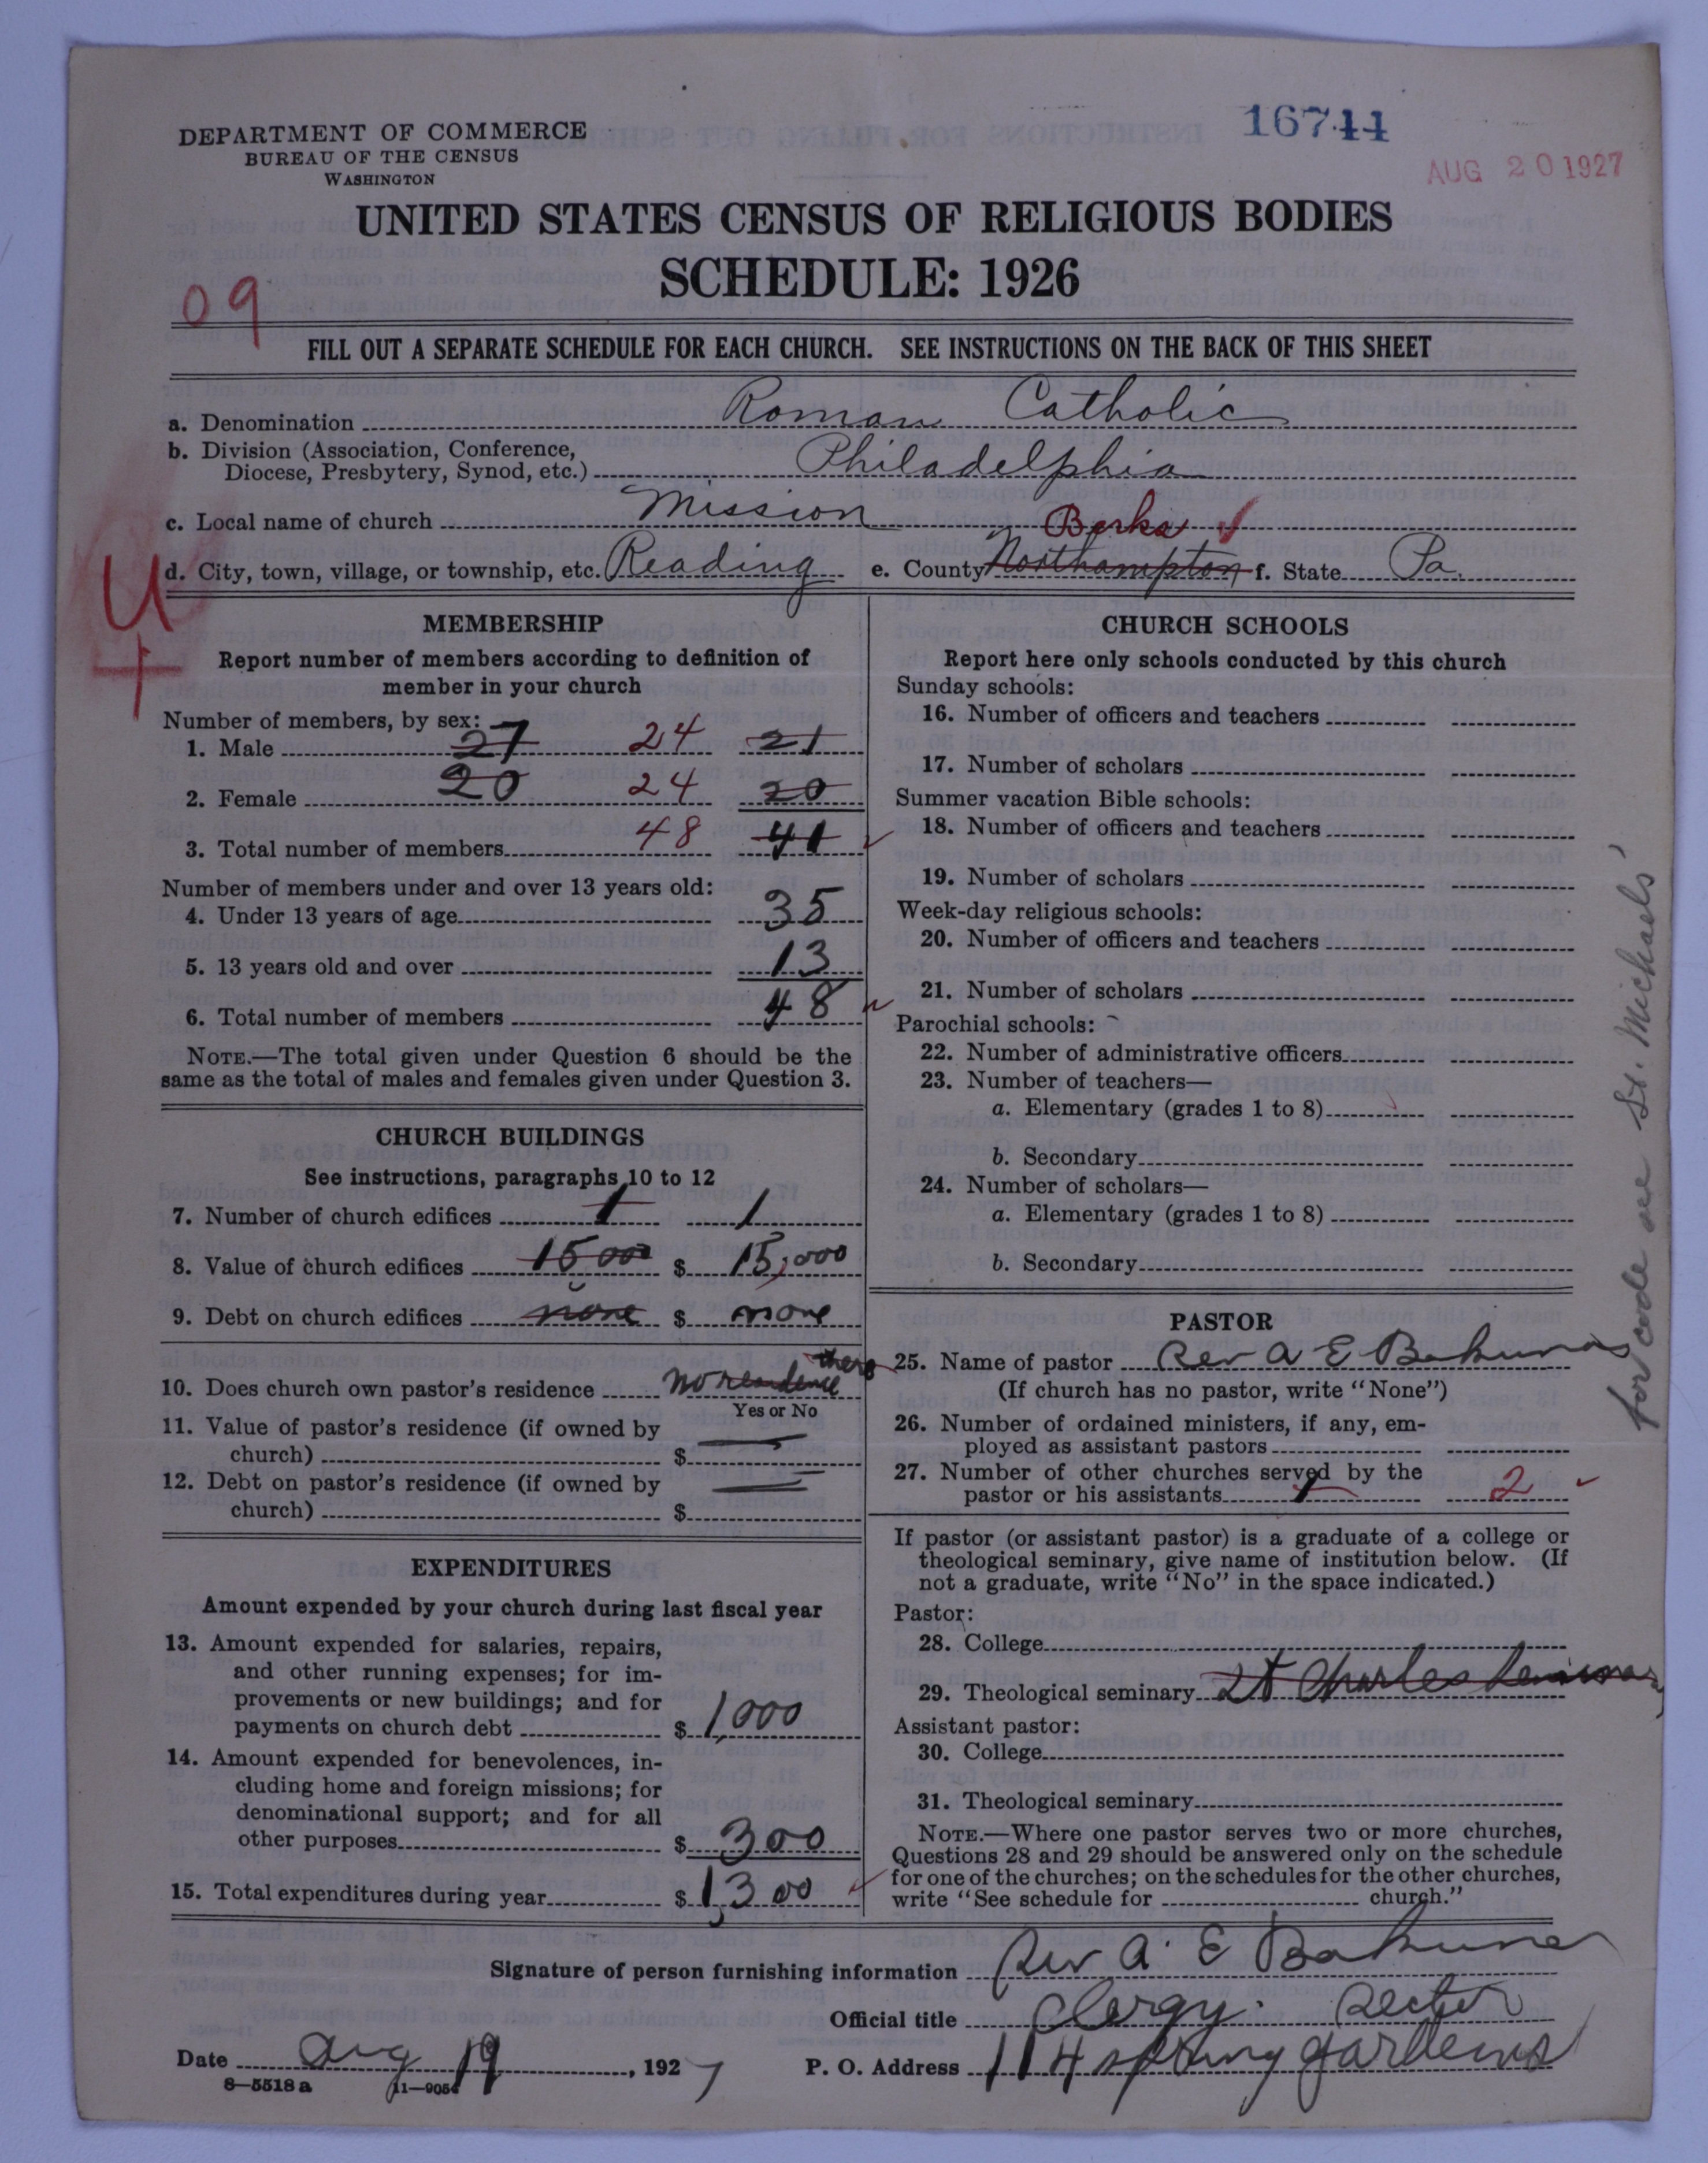 16744
AUG 20 1927
DEPARTMENT OF COMMERCE
BUREAU OF THE CENSUS
WASHINGTON
UNITED STATES CENSUS OF RELIGIOUS BODIES
SCHEDULE: 1926
09
FILL OUT A SEPARATE SCHEDULE FOR EACH CHURCH. SEE INSTRUCTIONS ON THE BACK OF THIS SHEET
a. Denomination Roman Catholic
b. Division (Association, Conference,
Diocese, Presbytery, Synod, etc.) Philadelphia
c. Local name of church Mission Berks ✓
d. City, town, village, or township, etc. Reading e. County Northampton f. State Pa.
U
MEMBERSHIP
Report number of members according to definition of
member in your church
Number of members, by sex:
1. Male 27 24 21
2. Female 20 24 20
3. Total number of members 48 41 ✓
Number of members under and over 13 years old:
4. Under 13 years of age 35
5. 13 years old and over 13
6. Total number of members 48 ✓
NOTE.—The total given under Question 6 should be the
same as the total of males and females given under Question 3.
CHURCH BUILDINGS
See instructions, paragraphs 10 to 12
7. Number of church edifices 1 1
8. Value of church edifices 15000 $ 15,000
9. Debt on church edifices none $ none
10. Does church own pastor's residence no residence there
Yes or No
11. Value of pastor's residence (if owned by
church) $
12. Debt on pastor's residence (if owned by
church) $
EXPENDITURES
Amount expended by your church during last fiscal year
13. Amount expended for salaries, repairs,
and other running expenses; for im-
provements or new buildings; and for
payments on church debt $ 1,000
14. Amount expended for benevolences, in-
cluding home and foreign missions; for
denominational support; and for all
other purposes $ 300
15. Total expenditures during year $ 1,300 ✓
CHURCH SCHOOLS
Report here only schools conducted by this church
Sunday schools:
16. Number of officers and teachers
17. Number of scholars
Summer vacation Bible schools:
18. Number of officers and teachers
19. Number of scholars
Week-day religious schools:
20. Number of officers and teachers
21. Number of scholars
Parochial schools:
22. Number of administrative officers
23. Number of teachers—
a. Elementary (grades 1 to 8)
b. Secondary
24. Number of scholars—
a. Elementary (grades 1 to 8)
b. Secondary
PASTOR
25. Name of pastor Rev A E Bakunas
(If church has no pastor, write "None")
26. Number of ordained ministers, if any, em-
ployed as assistant pastors
27. Number of other churches served by the
pastor or his assistants 1 2 ✓
If pastor (or assistant pastor) is a graduate of a college or
theological seminary, give name of institution below. (If
not a graduate, write "No" in the space indicated.)
Pastor:
28. College
29. Theological seminary St Charles Seminary
Assistant pastor:
30. College
31. Theological seminary
NOTE.—Where one pastor serves two or more churches,
Questions 28 and 29 should be answered only on the schedule
for one of the churches; on the schedules for the other churches,
write "See schedule for church."
for code see St. Michaels'
Signature of person furnishing information Rev A. E Bakunas
Official title Clergy. Rector
Date Aug 19, 1927 P. O. Address 114 Spring Gardens
8—5518a 11—9054